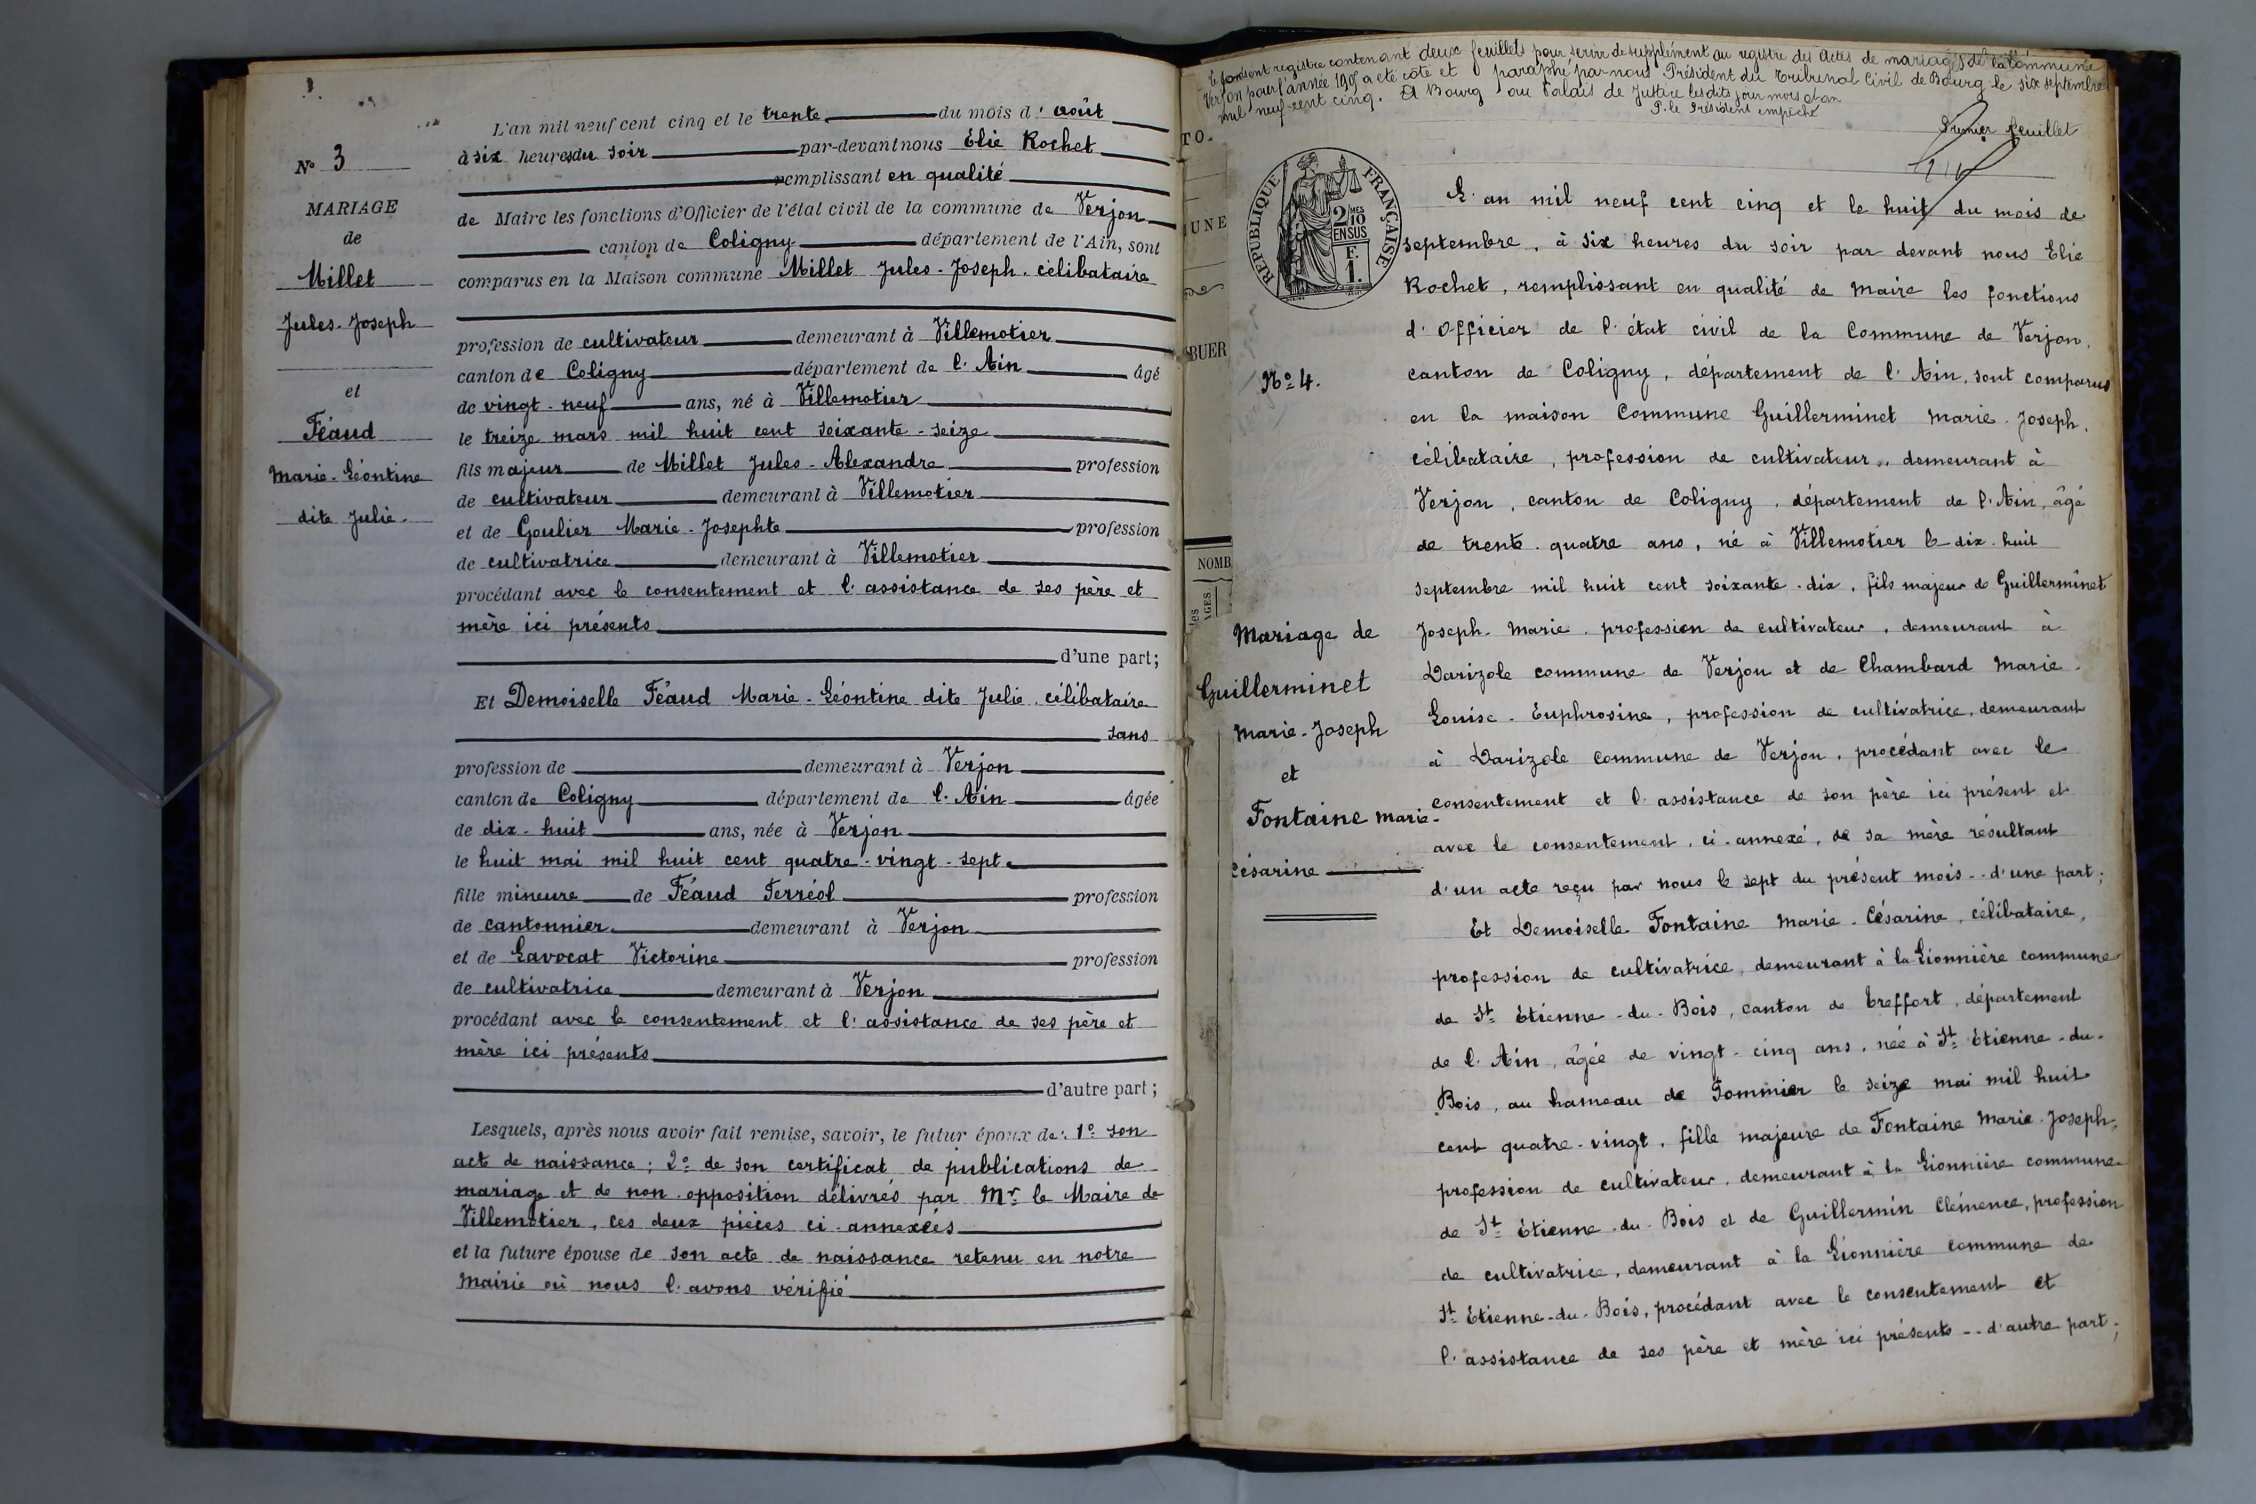 N° 3
MARIAGE
de
Millet
Jules-Joseph
et
Féaud
Marie-Léontine
dite Julie.
L'an mil neuf cent cinq et le trente du mois d'août
à six heures du soir par-devant nous Elie Rochet
remplissant en qualité
de Maire les fonctions d'Officier de l'état civil de la commune de Verjon
canton de Coligny département de l'Ain, sont
comparus en la Maison commune Millet Jules-Joseph. célibataire
profession de cultivateur demeurant à Villemotier
canton de Coligny département de l'Ain âgé
de vingt-neuf ans, né à Villemotier
le treize mars mil huit cent soixante-seize
fils majeur de Millet Jules-Alexandre profession
de cultivateur demeurant à Villemotier
et de Goulier Marie-Josephte profession
de cultivatrice demeurant à Villemotier
procédant avec le consentement et l'assistance de ses père et
mère ici présents
d'une part;
Et Demoiselle Féaud Marie-Léontine dite Julie, célibataire
sans
profession de demeurant à Verjon
canton de Coligny département de l'Ain âgée
de dix-huit ans, née à Verjon
le huit mai mil huit cent quatre-vingt-sept
fille mineure de Féaud Ferréol profession
de cantonnier demeurant à Verjon
et de Lavocat Victorine profession
de cultivatrice demeurant à Verjon
procédant avec le consentement et l'assistance de ses père et
mère ici présents
d'autre part;
Lesquels, après nous avoir fait remise, savoir, le futur époux de: 1° son
acte de naissance; 2° de son certificat de publications de
mariage et de non opposition délivrés par Mr le Maire de
Villemotier, ces deux pièces ci-annexées
et la future épouse de son acte de naissance retenu en notre
Mairie où nous l'avons vérifié
TO.
UNE
BUER
NOMB
AGES
Le présent registre contenant deux feuillets pour servir de supplément au registre des actes de mariages de la Commune
Verjon pour l'année 1905 a été coté et paraphé par nous Président du Tribunal Civil de Bourg le six septembre
mil neuf cent cinq. A Bourg au Palais de Justice lesdits jour mois et an
P. le Président empêché
Premier feuillet
REPUBLIQUE FRANÇAISE
2/10 MES
EN SUS
F.
1.
N° 4.
Mariage de
Guillerminet
Marie-Joseph
et
Fontaine Marie-
Césarine
L'an mil neuf cent cinq et le huit du mois de
septembre, à six heures du soir par devant nous Elie
Rochet, remplissant en qualité de maire les fonctions
d'Officier de l'état civil de la Commune de Verjon,
canton de Coligny, département de l'Ain, sont comparus
en la maison Commune Guillerminet Marie-Joseph,
célibataire, profession de cultivateur, demeurant à
Verjon, canton de Coligny, département de l'Ain, âgé
de trente-quatre ans, né à Villemotier le dix-huit
septembre mil huit cent soixante-dix, fils majeur de Guillerminet
Joseph-Marie, profession de cultivateur, demeurant à
Darizole commune de Verjon et de Chambard Marie-
Louise-Euphrosine, profession de cultivatrice, demeurant
à Darizole commune de Verjon, procédant avec le
consentement et l'assistance de son père ici présent et
avec le consentement, ci-annexé, de sa mère résultant
d'un acte reçu par nous le sept du présent mois -- d'une part;
Et Demoiselle Fontaine Marie-Césarine, célibataire,
profession de cultivatrice, demeurant à la Lionnière commune
de St Etienne-du-Bois, canton de Treffort, département
de l'Ain, âgée de vingt-cinq ans, née à St Etienne-du-
Bois, au hameau de Pommier le seize mai mil huit
cent quatre-vingt, fille majeure de Fontaine Marie-Joseph,
profession de cultivateur, demeurant à la Lionnière commune
de St Etienne-du-Bois et de Guillermin Clémence, profession
de cultivatrice, demeurant à la Lionnière commune de
St Etienne-du-Bois, procédant avec le consentement et
l'assistance de ses père et mère ici présents -- d'autre part;